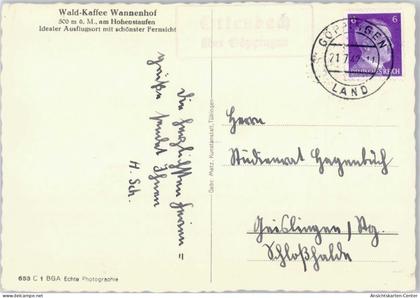 Wald-Kaffee Wannenhof
500 m ü. M., am Hohenstaufen
Idealer Ausflugsort mit schönster Fernsicht
Ottenbach
über Göppingen
GÖPPINGEN
21.7.42
LAND
6 6
DEUTSCHES REICH
Die herzlichsten Ferien =
grüße sendet Ihnen
H. Sch.
Gebr. Metz, Kunstanstalt, Tübingen
Herrn
Studienrat Hegenbuch
Geislingen / Stg.
Schloßhalde
653 C 1 BGA Echte Photographie